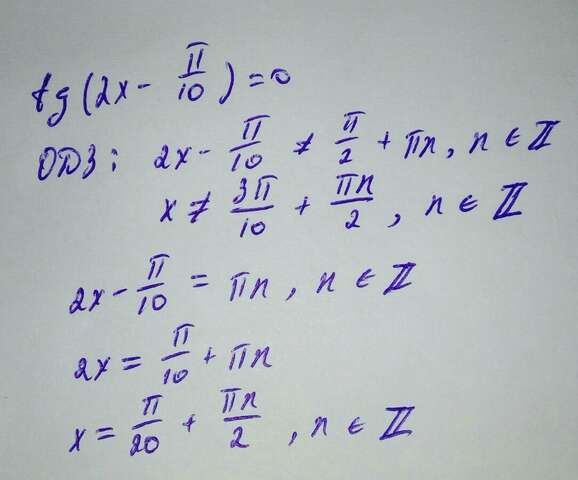 tg(2x - π/10) = 0
ОДЗ: 2x - π/10 ≠ π/2 + πn, n ∈ ℤ
x ≠ 3π/10 + πn/2, n ∈ ℤ
2x - π/10 = πn, n ∈ ℤ
2x = π/10 + πn
x = π/20 + πn/2, n ∈ ℤ